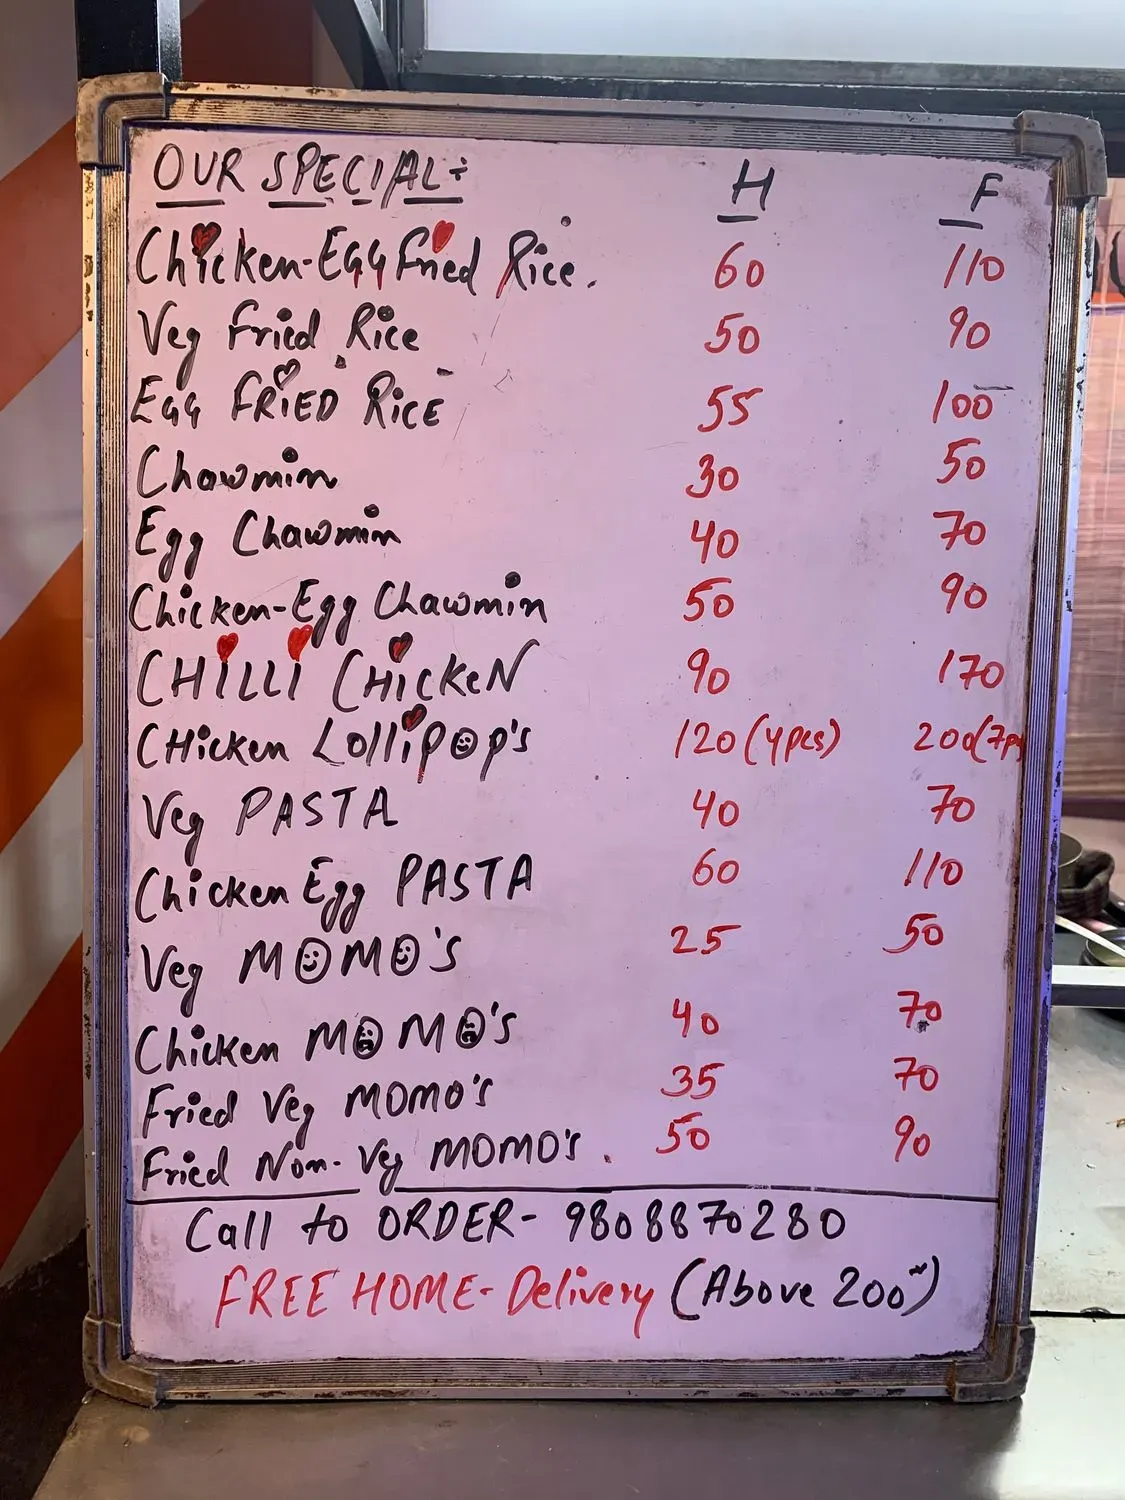 OUR SPECIAL:- H F
Chicken-EGG Fried Rice. 60 110
Veg Fried Rice 50 90
EGG FRiED RiCE 55 100
Chawmin 30 50
Egg Chawmin 40 70
Chicken-Egg Chawmin 50 90
CHiLLi CHicKeN 90 170
CHicken LolliPoP's 120 (4pcs) 200(7p
Veg PASTA 40 70
Chicken Egg PASTA 60 110
Veg MOMO'S 25 50
Chicken MOMO'S 40 70
Fried Veg MOMO'S 35 70
Fried Non-Veg MOMO'S. 50 90
Call to ORDER- 9808870280
FREE HOME-Delivery (Above 200~)